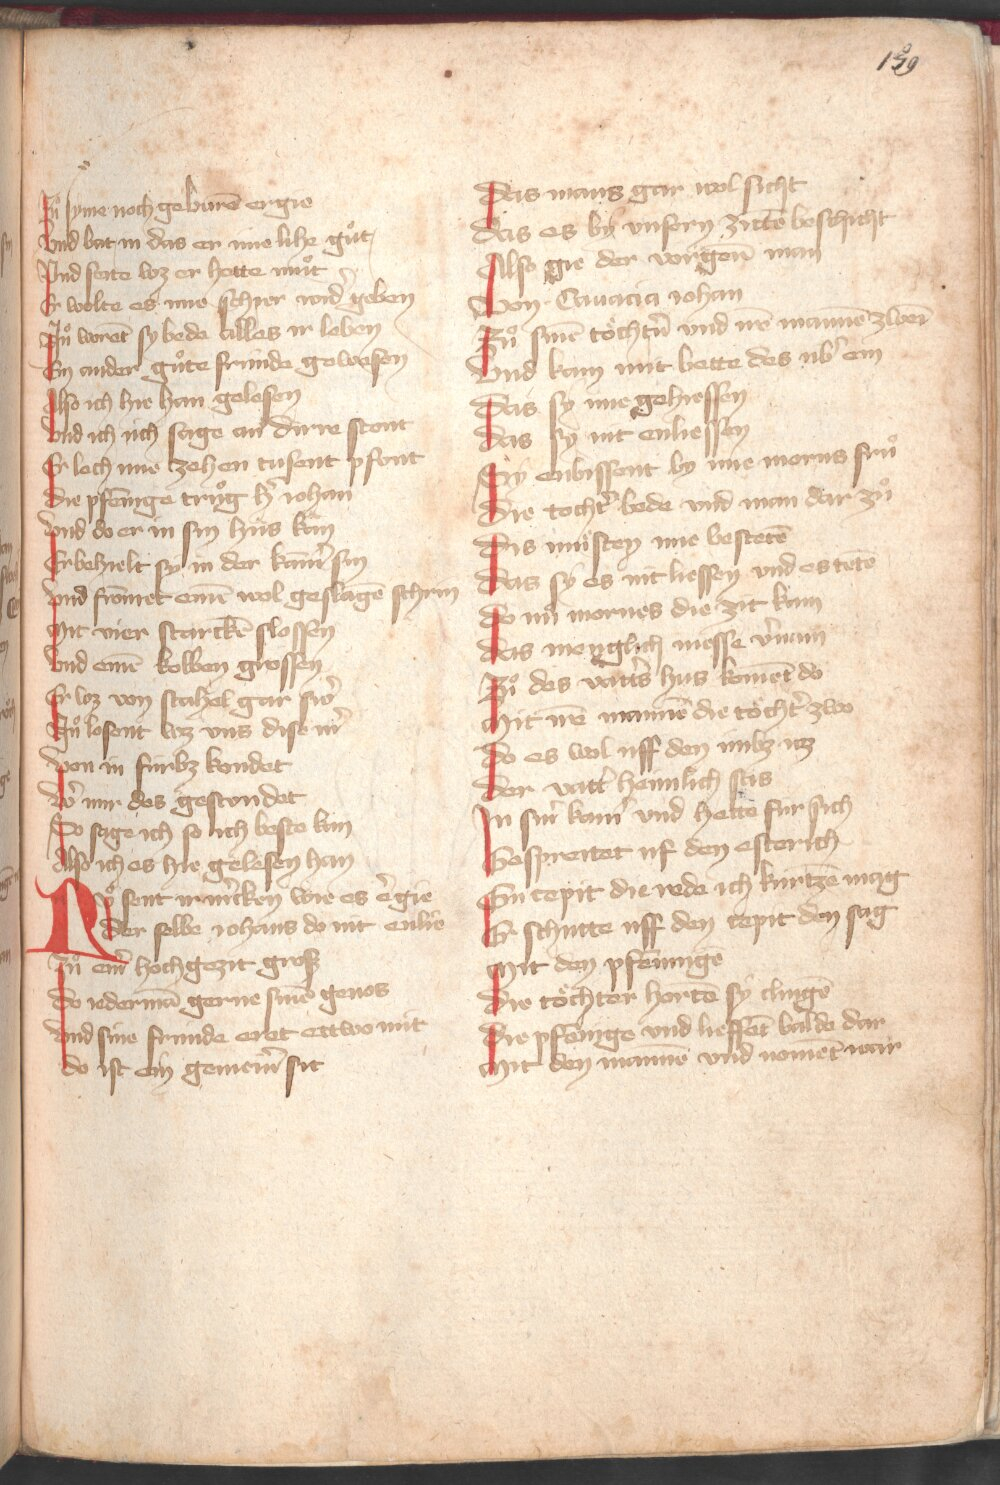 139
Zů syme nochgeburē er gie
Vnd bat in das er ime lihe gůt
Vnd seite wz er hette můt
Er wolte es ime schier widˀ geben
Nů worēt sy bede alles ir leben
Ein ander gůte frunde gewesen
Also ich hie han gelesen
Vnd ich uch sage an dirre stont
Er lech ime zehen tusent pfont
Die pfēnige trůg hˀ iohan
Vnd do er in sin hus kam
Er behielt sy in der kamˀ sin
Vnd fromet einē wol geslagē schrin
Mit vier starckē slossen
Vnd einē kolben grossen
Er wz von stahel gar swˀ
Nů losent wz vns dise mˀ
Von in furbz kondet
Wˀ mir des gestondet
Do sage ich so ich beste kan
Also ich es hie gelesen han
Nů sent ir mˀcken wie es ˀgie
der selbe iohans do nit enlie
Zů einˀ hochgezit groß
Do iedermā gerne sinē genos
Vnd sine frunde eret ettwo mit
Do ist ein gemeinˀ sit
Das mans gar wol sicht
Das es by vnsern zitē beschicht
Also gie der vorgen̄ man
Von Cauacia iohan
Zů sinē tochtˀn vnd irē mannē zwen̄
Vnd kam mit bette des ubˀ ein
Das sy ime gehiessen
Das sy nit enliessen
Sy enbissent by ime morns frů
Die tochtˀ bede vnd man dar zů
Dis můsten ime bestetē
Das sy es nit liessen vnd es tetē
Do nů mornes die zit kam
Das menglich messe vˀnam
Zů des vattˀs hus komēt do
Mit irē mannē die tochtˀ zwo
Do es wol uff den imbz wz
Der vattˀ heimlich sas
In sinˀ kamˀ vnd hette fur sich
Gespreitet uf den esterich
Ein tepit die rede ich kurtzē mag
Er schutte uff den tepit den sag
Mit den pfēnigē
Die tochter hortē sy clingē
Die pfēnige vnd lieffēt balde dar
Mit den mannē vnd nomēt war